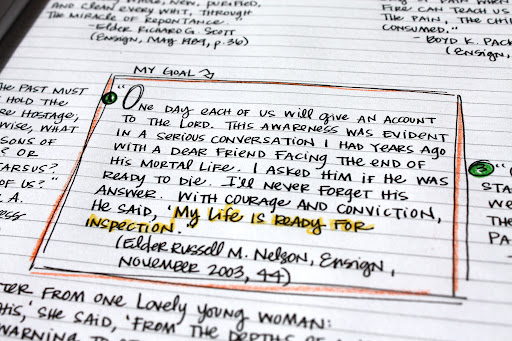 AND CLEAN EVERY WHIT, THROUGH
THE MIRACLE OF REPENTANCE."
-ELDER RICHARD G. SCOTT
(ENSIGN, MAY 1984, p.36)
FIRE CAN TEACH US
THE PAIN, THE
CONSUMED."
- BOYD K. PACK
(ENSIGN,
MY GOAL
HE PAST MUST
HOLD THE
RE HOSTAGE,
WISE, WHAT
SONS OF
? OR
TARSUS?
OF US?"
A.
"ONE DAY EACH OF US WILL GIVE AN ACCOUNT
TO THE LORD. THIS AWARENESS WAS EVIDENT
IN A SERIOUS CONVERSATION I HAD YEARS AGO
WITH A DEAR FRIEND FACING THE END OF
HIS MORTAL LIFE. I ASKED HIM IF HE WAS
READY TO DIE. I'LL NEVER FORGET HIS
ANSWER. WITH COURAGE AND CONVICTION,
HE SAID, 'MY LIFE IS READY FOR
INSPECTION.'"
(ELDER RUSSELL M. NELSON, ENSIGN,
NOVEMBER 2003, 44)
STA
WE
THE
PA
TER FROM ONE LOVELY YOUNG WOMAN:
HIS,' SHE SAID, 'FROM THE DEPTHS OF
WARNING TO